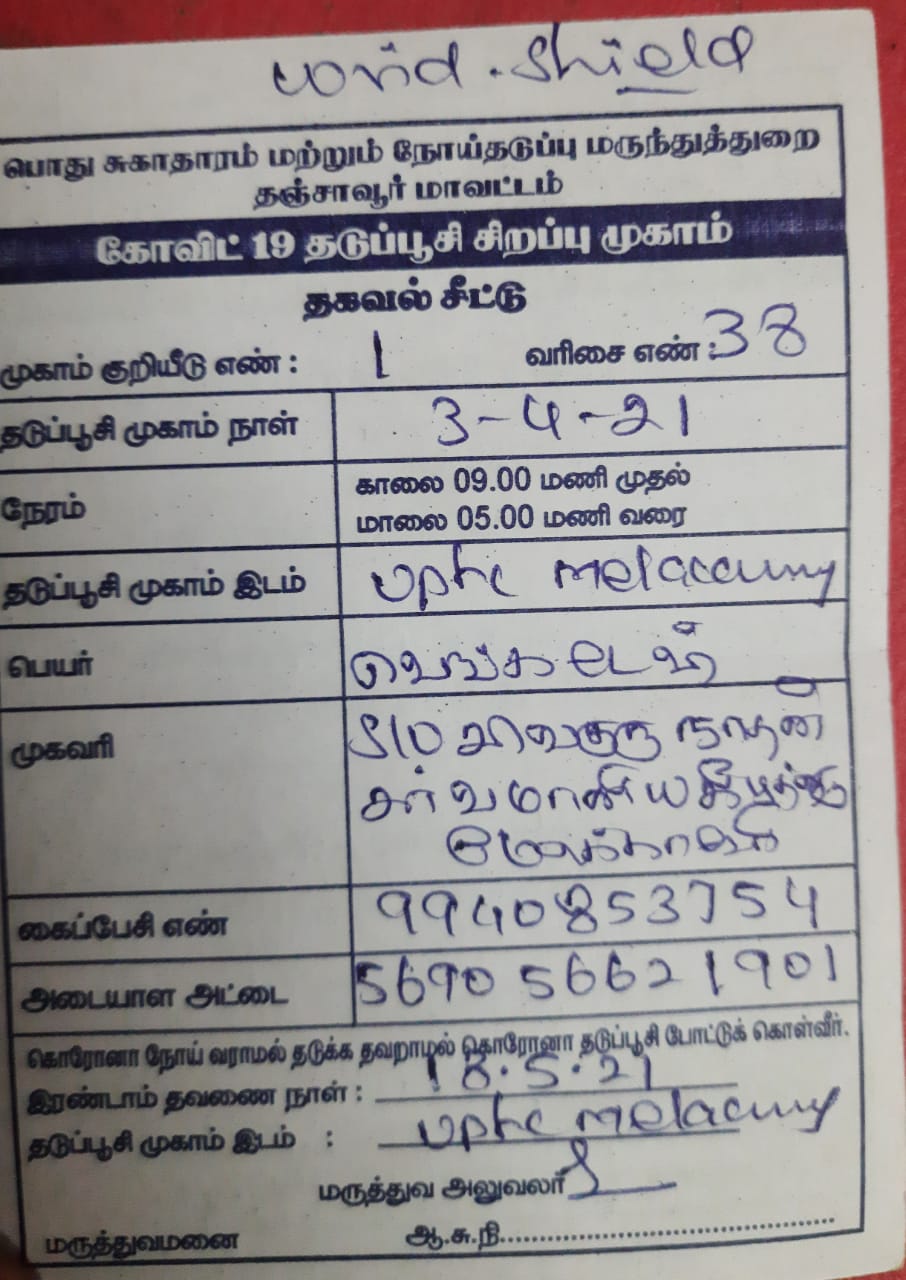 covid . shield
பொது சுகாதாரம் மற்றும் நோய்தடுப்பு மருந்துத்துறை
தஞ்சாவூர் மாவட்டம்
கோவிட் 19 தடுப்பூசி சிறப்பு முகாம்
தகவல் சீட்டு
முகாம் குறியீடு எண் : 1 வரிசை எண் : 38
தடுப்பூசி முகாம் நாள் 3-4-21
நேரம் காலை 09.00 மணி முதல்
மாலை 05.00 மணி வரை
தடுப்பூசி முகாம் இடம் uphc
பெயர் வெங்கடேஷ்
முகவரி S/O சிவகுருநாதன்
சர்வமானிய
கைப்பேசி எண் 99408 53754
அடையாள அட்டை 5690 5662 1901
கொரோனா நோய் வராமல் தடுக்க தவறாமல் கொரோனா தடுப்பூசி போட்டுக் கொள்வீர்.
இரண்டாம் தவணை நாள் : 18.5.21
தடுப்பூசி முகாம் இடம் : uphc
மருத்துவ அலுவலர்
மருத்துவமனை ஆ.சு.நி..............................